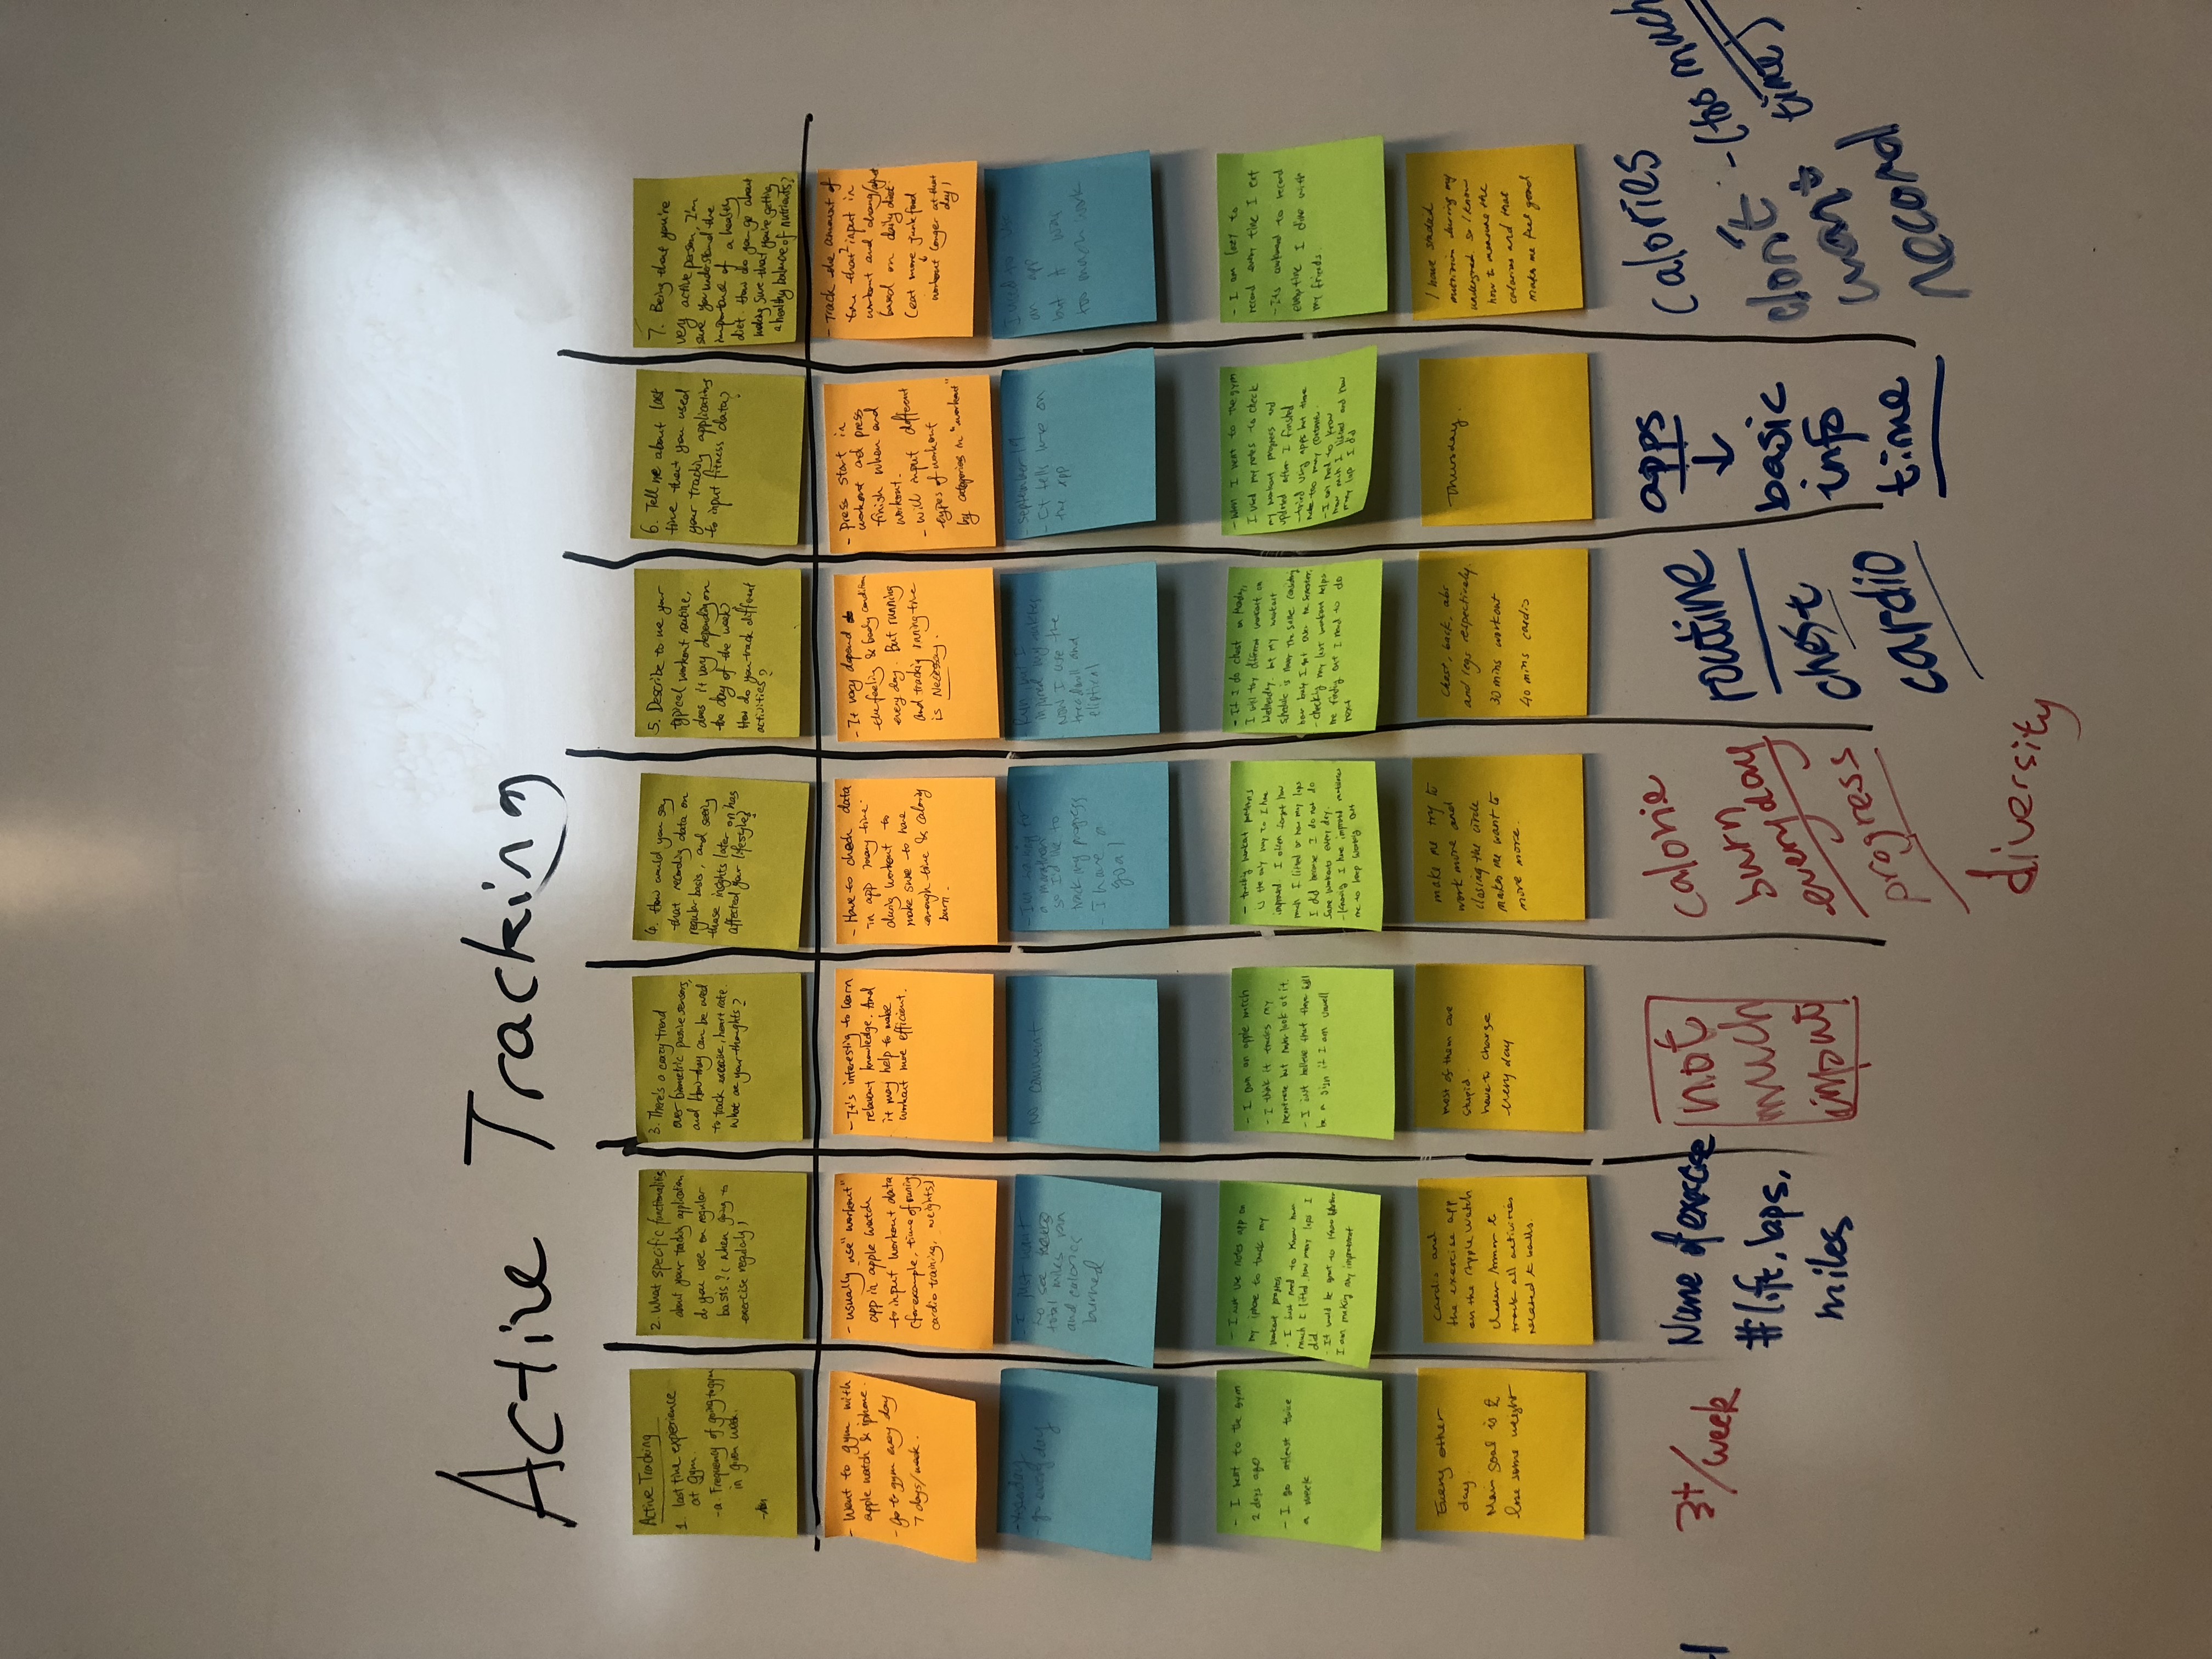 Active Tracking
Active Tracking
1. last time experience
at gym.
-a. Frequency of going to gym
in given week.
2. What specific functionalities
about your tracking application
do you use on regular
basis? (when going to
exercise regularly)
3. There's a crazy trend
over biometric passive sensors,
and how they can be used
to track exercise, heart rate.
What are your thoughts?
4. How would you say
that recording data on
regular basis, and seeing
these insights later on has
affected your lifestyle?
5. Describe to me your
typical workout routine,
does it vary depending on
the day of the week?
How do you track different
activities?
6. Tell me about last
time that you used
your tracking applications
to input fitness data?
7. Being that you're
very active person, I'm
sure you understand the
importance of a healthy
diet. How do you go about
making sure that you're getting
a healthy balance of nutrients?
- Went to gym with
apple watch & iphone.
- Go to gym every day
7 days/week.
- usually use "workout"
app in apple watch
to input workout data
(for example, time of runing,
cardio training, weights)
- It's interesting to learn
relevant knowledge. And
it may help to make
workout more efficient.
- Have to check data
in app many time
during workout to
make sure to have
enough time & calory
burn.
- It vary depend
the feeling & body condition
every day. But running
and trackig running time
is Necessary.
- press start in
workout and press
finish when end
workout.
- will input different
types of workout
by categories in "workout"
- Track the amount of
time that input in
workout and change/adjust
based on daily diet.
(eat more junk food
↓
workout longer at that
day)
- Yesterday
- go every day
- I just want
to see
total miles ran
and calories
burned
No comment
- I'm training for
a marathon
so I'd like to
tracking progress
- I have a
goal
- Run, but I
injured my
Now I use the
treadmill and
eliptical
- September 19
- it tells me on
the app
I used to use
an app
but it was
too much work
- I went to the gym
2 days ago
- I go atleast twice
a week
- I just use notes app on
my iphone to track my
workout progress
- I just need to know how
much I lifted, how many laps I
did
- It would be great to know whether
I am making any improvement
- I own an apple watch
- I think it tracks my
heartrate but never look at it.
- I just believe that there will
be a sign if I am unwell
- tracking workout patterns
is the only way to I have
improved. I often forget how
much I lifted or how many laps
I did because I do not do
same workouts every day.
- knowing I have improved motivates
me to keep working out
- If I do chest on Monday,
I will try different workout on
Wednesday. but my workout
schedule is never the same considering
how busy I get over the semester.
- checking my last workout helps
me finding out I need to do
next
- When I went to the gym
I used my notes to check
my workout progress and
updated after I finished
- tried using apps but there
were too many contents
- I only need to know
how much I lifted and how
many lap I did
- I am lazy to
record every time I eat
- Its awkward to record
everytime I dine with
my friends.
Every other
day.
Main goal is to
lose some weight
Cardio and
the exercise app
on the Apple Watch
Under Armor to
track all activities
related to
Most of them are
stupid.
have to charge
every day
make me try to
work more and
closing the circle
makes me want to
more more.
Chest, back, abs
and legs respectively.
30 mins workout
40 mins cardio
Thursday.
I have studied
nutrition during my
undergrad. so I know
how to measure the
calories and that
makes me feel good
3+/week
Name of exercise
#lift, laps,
miles
not
much
input
calorie
burn
everyday
progress
diversity
routine
chest
cardio
apps
↓
basic
info
time
Calories
don't
want
record
- (too much
time)